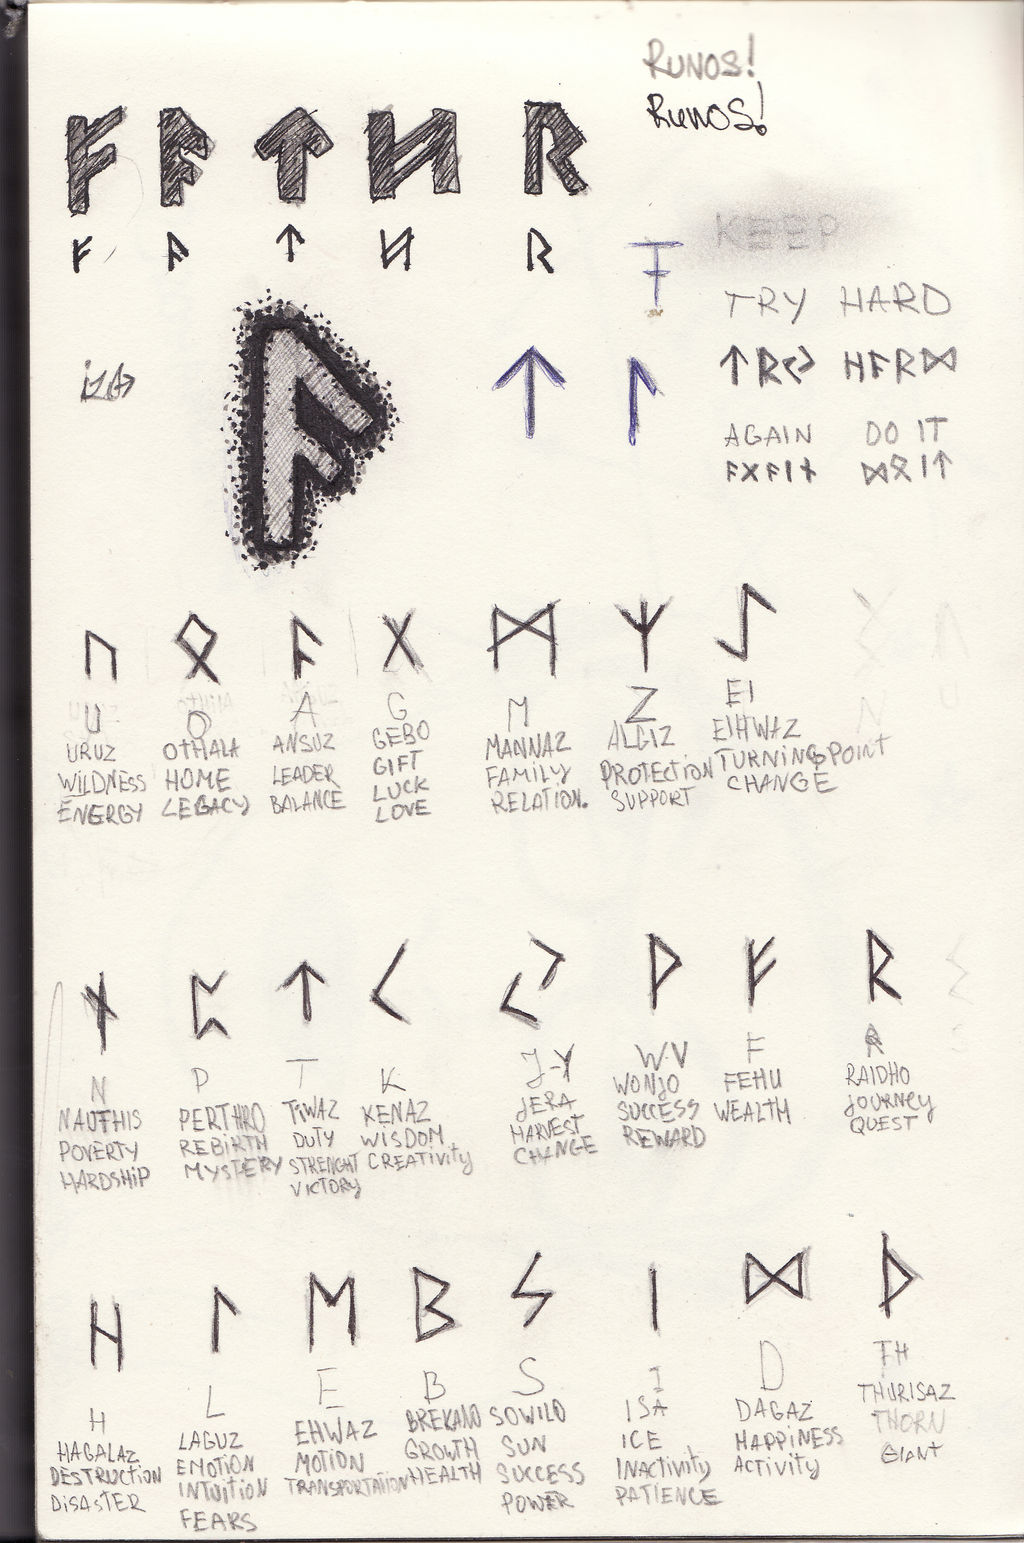 RUNOS!
RUNOS!
ᚠ ᚨ ᛏ ᛋ ᚱ
ᚠ ᚨ ᛏ ᚱ
KEEP
TRY HARD
ᛏᚱᛃ ᚺᚨᚱᛞ
ᛏ ᛚ
AGAIN DO IT
ᚨᚷᚨᛁᚾ ᛞᛟᛁᛏ
ᚨ
ᚢ ᛟ ᚨ ᚷ ᛗ ᛉ ᛇ
U O A G M Z EI
URUZ OTHALA ANSUZ GEBO MANNAZ ALGIZ EIHWAZ
WILDNESS HOME LEADER GIFT FAMILY PROTECTION TURNINGPOINT
ENERGY LEGACY BALANCE LUCK RELATION. SUPPORT CHANGE
LOVE
ᚾ ᛈ ᛏ ᚲ ᛃ ᚹ ᚠ ᚱ
N P T K J-Y W-V F R
NAUTHIS PERTHRO TIWAZ KENAZ JERA WONJO FEHU RAIDHO
POVERTY REBIRTH DUTY WISDOM HARVEST SUCCESS WEALTH JOURNEY
HARDSHIP MYSTERY STRENGHT CREATIVITY CHANGE REWARD QUEST
VICTORY
ᚺ ᛚ ᛖ ᛒ ᛋ ᛁ ᛞ ᚦ
H L E B S I D TH
HAGALAZ LAGUZ EHWAZ BREKANO SOWILO ISA DAGAZ THURISAZ
DESTRUCTION EMOTION MOTION GROWTH SUN ICE HAPPINESS THORN
DISASTER INTUITION TRANSPORTATION HEALTH SUCCESS INACTIVITY ACTIVITY GIANT
FEARS POWER PATIENCE